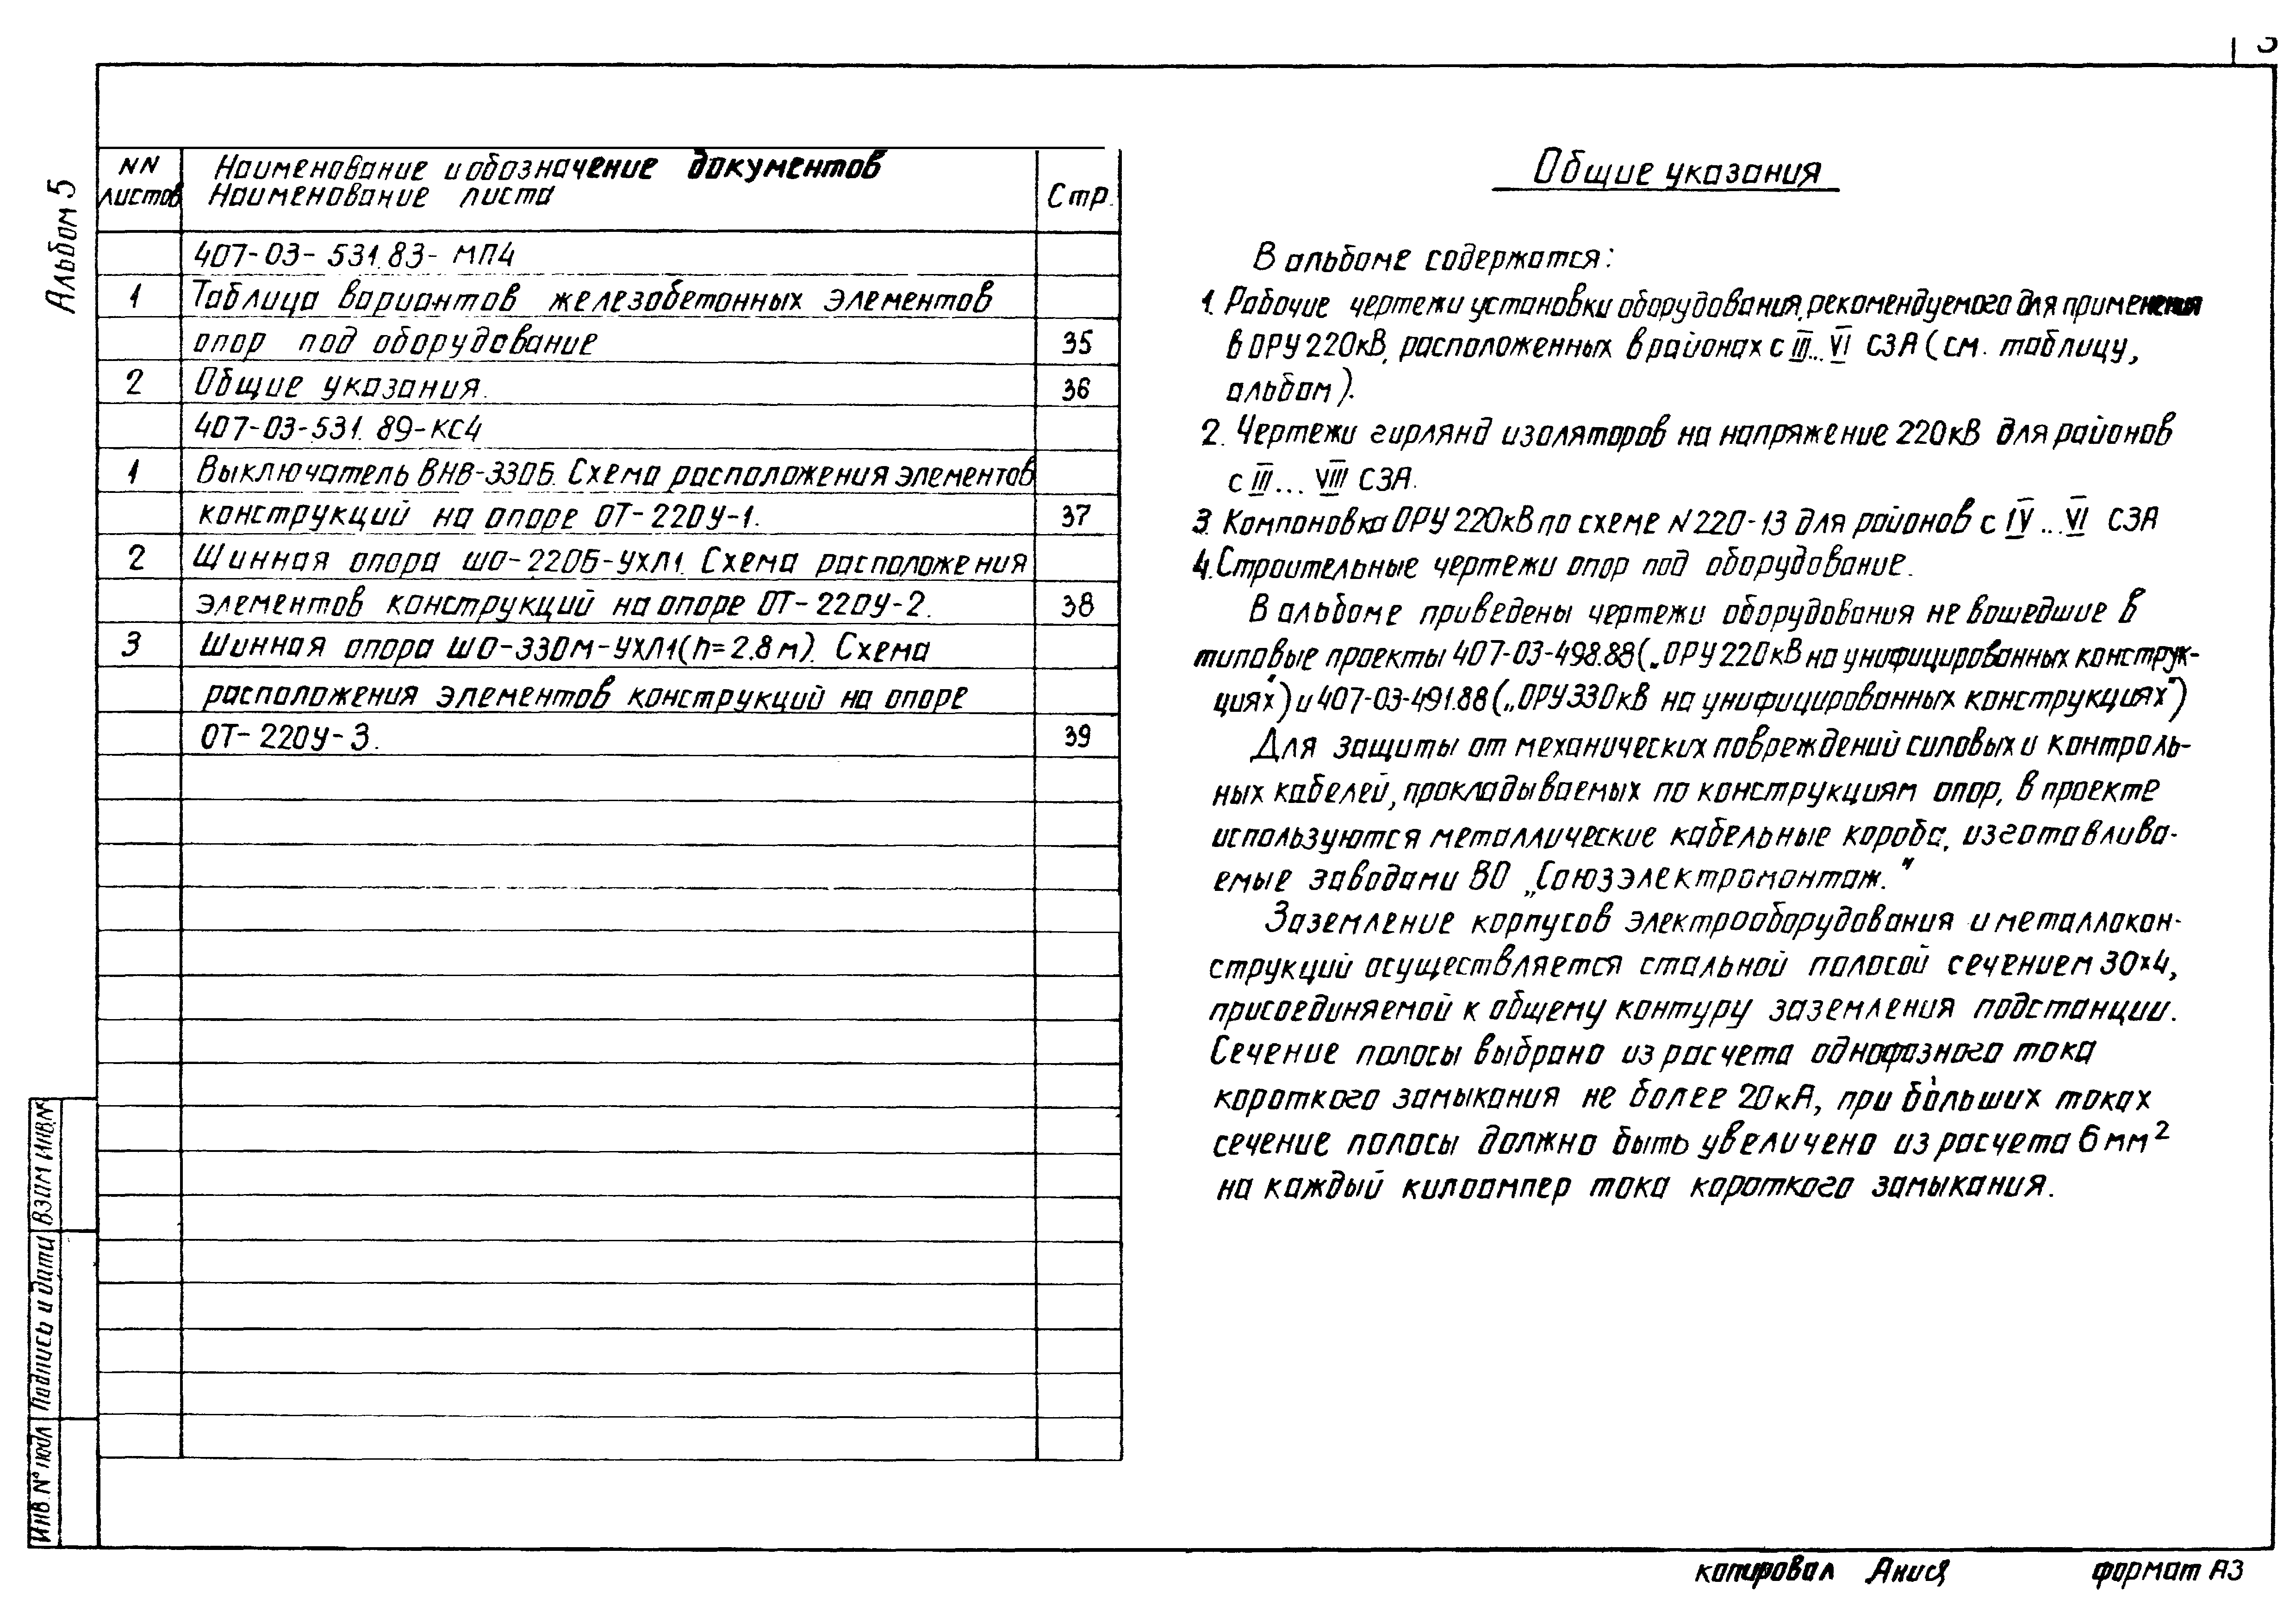 Альбом 5
NN листов
Наименование и обозначение документов
Наименование листа
Стр.
407-03-531.83-МП4
1 Таблица вариантов железобетонных элементов
опор под оборудование 35
2 Общие указания. 36
407-03-531.89-КС4
1 Выключатель ВНВ-330Б. Схема расположения элементов
конструкций на опоре ОТ-220У-1. 37
2 Шинная опора ШО-220Б-УХЛ1. Схема расположения
элементов конструкций на опоре ОТ-220У-2. 38
3 Шинная опора ШО-330м-УХЛ1(h=2.8м). Схема
расположения элементов конструкций на опоре
ОТ-220У-3. 39
Общие указания
В альбоме содержатся:
1. Рабочие чертежи установки оборудования, рекомендуемого для применения
в ОРУ 220кВ, расположенных в районах с III... VI СЗА (см. таблицу,
альбом).
2. Чертежи гирлянд изоляторов на напряжение 220кВ для районов
с III... VIII СЗА.
3. Компоновка ОРУ 220кВ по схеме N220-13 для районов с IV...VI СЗА
4. Строительные чертежи опор под оборудование.
В альбоме приведены чертежи оборудования не вошедшие в
типовые проекты 407-03-498.88 („ОРУ 220кВ на унифицированных конструк-
циях") и 407-03-491.88 („ОРУ 330кВ на унифицированных конструкциях")
Для защиты от механических повреждений силовых и контроль-
ных кабелей, прокладываемых по конструкциям опор, в проекте
используются металлические кабельные короба, изготавлива-
емые заводами ВО „Союзэлектромонтаж."
Заземление корпусов электрооборудования и металлокон-
струкций осуществляется стальной полосой сечением 30×4,
присоединяемой к общему контуру заземления подстанции.
Сечение полосы выбрано из расчета однофазного тока
короткого замыкания не более 20кА, при бо́льших токах
сечение полосы должно быть увеличено из расчета 6мм²
на каждый килоампер тока короткого замыкания.
Взам инв.N
Подпись и дата
Инв. N° подл
копировал Анися формат А3